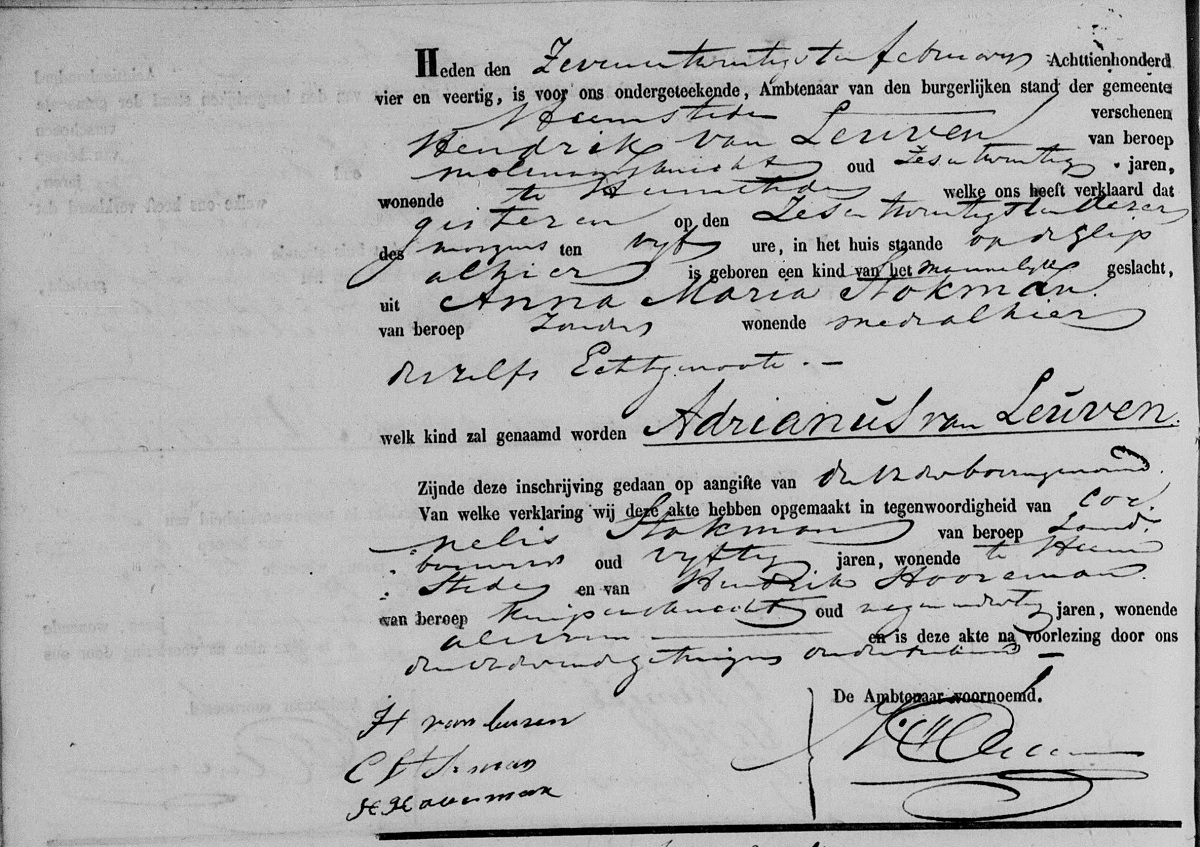 Heden den Zevenentwintigsten februarij Achttienhonderd
vier en veertig, is voor ons ondergeteekende, Ambtenaar van den burgerlijken stand der gemeente
Heemstede verschenen
Hendrik van Leuven van beroep
molenaarsknecht oud Zesentwintig jaren,
wonende te Heemstede welke ons heeft verklaard dat
gisteren op den Zesentwintigsten dezer
des morgens ten vijf ure, in het huis staande op de glip
alhier is geboren een kind van het mannelijk geslacht,
uit Anna Maria Stokman
van beroep Zonder wonende mede alhier
deszelfs Echtgenoote. —
welk kind zal genaamd worden Adrianus van Leuven.
Zijnde deze inschrijving gedaan op aangifte van den vader bovengenoemd.
Van welke verklaring wij deze akte hebben opgemaakt in tegenwoordigheid van Cor-
nelis Stokman van beroep Land-
bouwer oud vijftig jaren, wonende te Heem
stede en van Hendrik Hooreman
van beroep oud negenendertig jaren, wonende
alhier en is deze akte na voorlezing door ons
den vader en de getuigen onderteekend —
De Ambtenaar voornoemd.
H van Leuven
C Stokman
H Hooreman